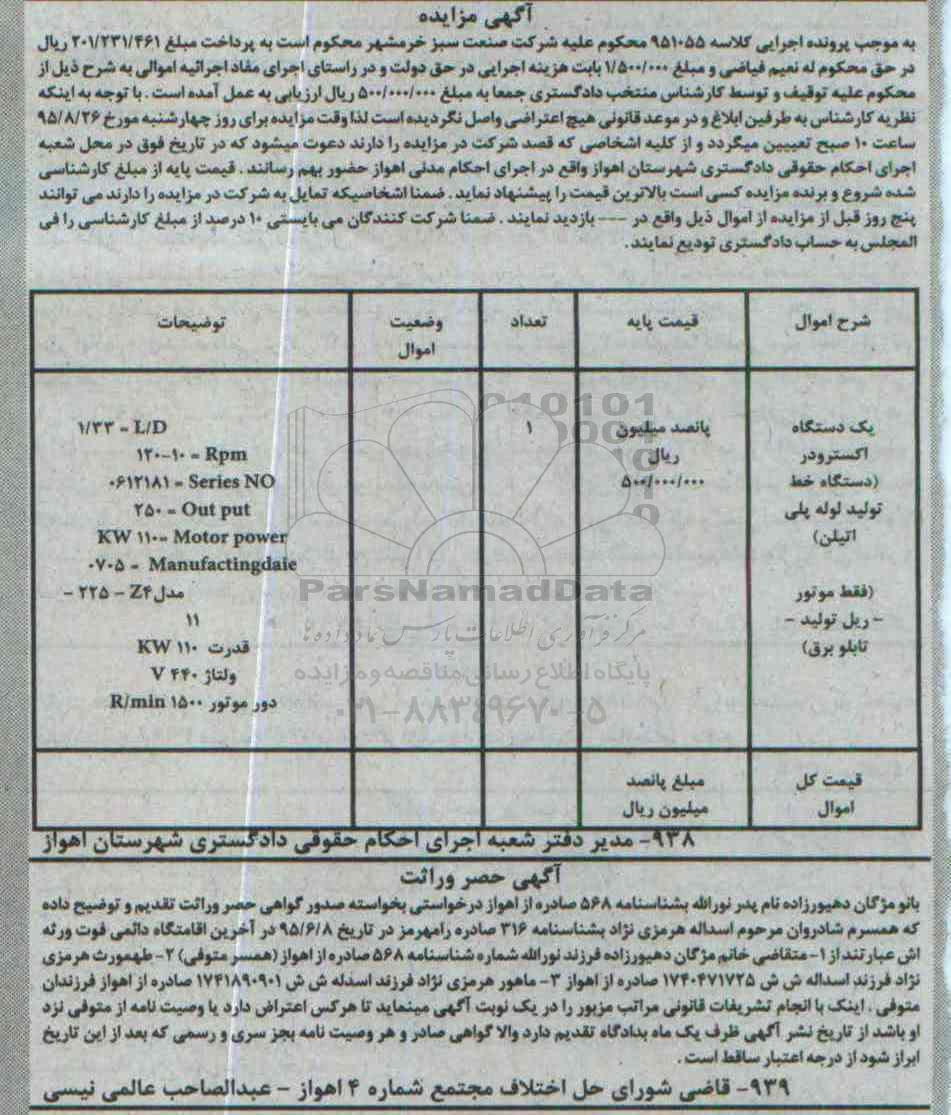 آگهی مزایده
به موجب پرونده اجرایی کلاسه ۹۵۱۰۵۵ محکوم علیه شرکت صنعت سبز خرمشهر محکوم است به پرداخت مبلغ ۲۰۱/۲۳۱/۴۶۱ ریال
در حق محکوم له نعیم فیاضی و مبلغ ۱/۵۰۰/۰۰۰ بابت هزینه اجرایی در حق دولت و در راستای اجرای مفاد اجرائیه اموالی به شرح ذیل از
محکوم علیه توقیف و توسط کارشناس منتخب دادگستری جمعا به مبلغ ۵۰۰/۰۰۰/۰۰۰ ریال ارزیابی به عمل آمده است . با توجه به اینکه
نظریه کارشناس به طرفین ابلاغ و در موعد قانونی هیچ اعتراضی واصل نگردیده است لذا وقت مزایده برای روز چهارشنبه مورخ ۹۵/۸/۲۶
ساعت ۱۰ صبح تعیین میگردد و از کلیه اشخاصی که قصد شرکت در مزایده را دارند دعوت میشود که در تاریخ فوق در محل شعبه
اجرای احکام حقوقی دادگستری شهرستان اهواز واقع در اجرای احکام مدنی اهواز حضور بهم رسانند . قیمت پایه از مبلغ کارشناسی
شده شروع و برنده مزایده کسی است بالاترین قیمت را پیشنهاد نماید . ضمنا اشخاصیکه تمایل به شرکت در مزایده را دارند می توانند
پنج روز قبل از مزایده از اموال ذیل واقع در --- بازدید نمایند . ضمنا شرکت کنندگان می بایستی ۱۰ درصد از مبلغ کارشناسی را فی
المجلس به حساب دادگستری تودیع نمایند .
شرح اموال قیمت پایه تعداد وضعیت اموال توضیحات
یک دستگاه
اکسترودر
(دستگاه خط
تولید لوله پلی
اتیلن)
(فقط موتور
- ریل تولید -
تابلو برق)
پانصد میلیون
ریال
۵۰۰/۰۰۰/۰۰۰
۱
۱/۳۳ = L/D
۱۲۰-۱۰ = Rpm
۰۶۱۲۱۸۱ = Series NO
۲۵۰ = Out put
KW ۱۱۰= Motor power
۰۷۰۵ = Manufactingdaie
مدل Z۴ - ۲۲۵ -
۱۱
قدرت ۱۱۰ KW
ولتاژ ۴۴۰ V
دور موتور ۱۵۰۰ R/min
قیمت کل
اموال
مبلغ پانصد
میلیون ریال
۹۳۸- مدیر دفتر شعبه اجرای احکام حقوقی دادگستری شهرستان اهواز
ParsNamadData
مرکز فرآوری اطلاعات پارس نماد داده ها
پایگاه اطلاع رسانی مناقصه و مزایده
۰۲۱-۸۸۳۴۹۶۷۰-۵
آگهی حصر وراثت
بانو مژگان دهیورزاده نام پدر نورالله بشناسنامه ۵۶۸ صادره از اهواز درخواستی بخواسته صدور گواهی حصر وراثت تقدیم و توضیح داده
که همسرم شادروان مرحوم اسداله هرمزی نژاد بشناسنامه ۳۱۶ صادره رامهرمز در تاریخ ۹۵/۶/۸ در آخرین اقامتگاه دائمی فوت ورثه
اش عبارتند از ۱-متقاضی خانم مژگان دهیورزاده فرزند نورالله شماره شناسنامه ۵۶۸ صادره از اهواز (همسر متوفی) ۲- طهمورث هرمزی
نژاد فرزند اسداله ش ش ۱۷۴۰۴۷۱۷۲۵ صادره از اهواز ۳- ماهور هرمزی نژاد فرزند اسدله ش ش ۱۷۴۱۸۹۰۹۰۱ صادره از اهواز فرزندان
متوفی . اینک با انجام تشریفات قانونی مراتب مزبور را در یک نوبت آگهی مینماید تا هرکس اعتراض دارد یا وصیت نامه از متوفی نزد
او باشد از تاریخ نشر آگهی ظرف یک ماه بدادگاه تقدیم دارد والا گواهی صادر و هر وصیت نامه بجز سری و رسمی که بعد از این تاریخ
ابراز شود از درجه اعتبار ساقط است .
۹۳۹- قاضی شورای حل اختلاف مجتمع شماره ۴ اهواز - عبدالصاحب عالمی نیسی